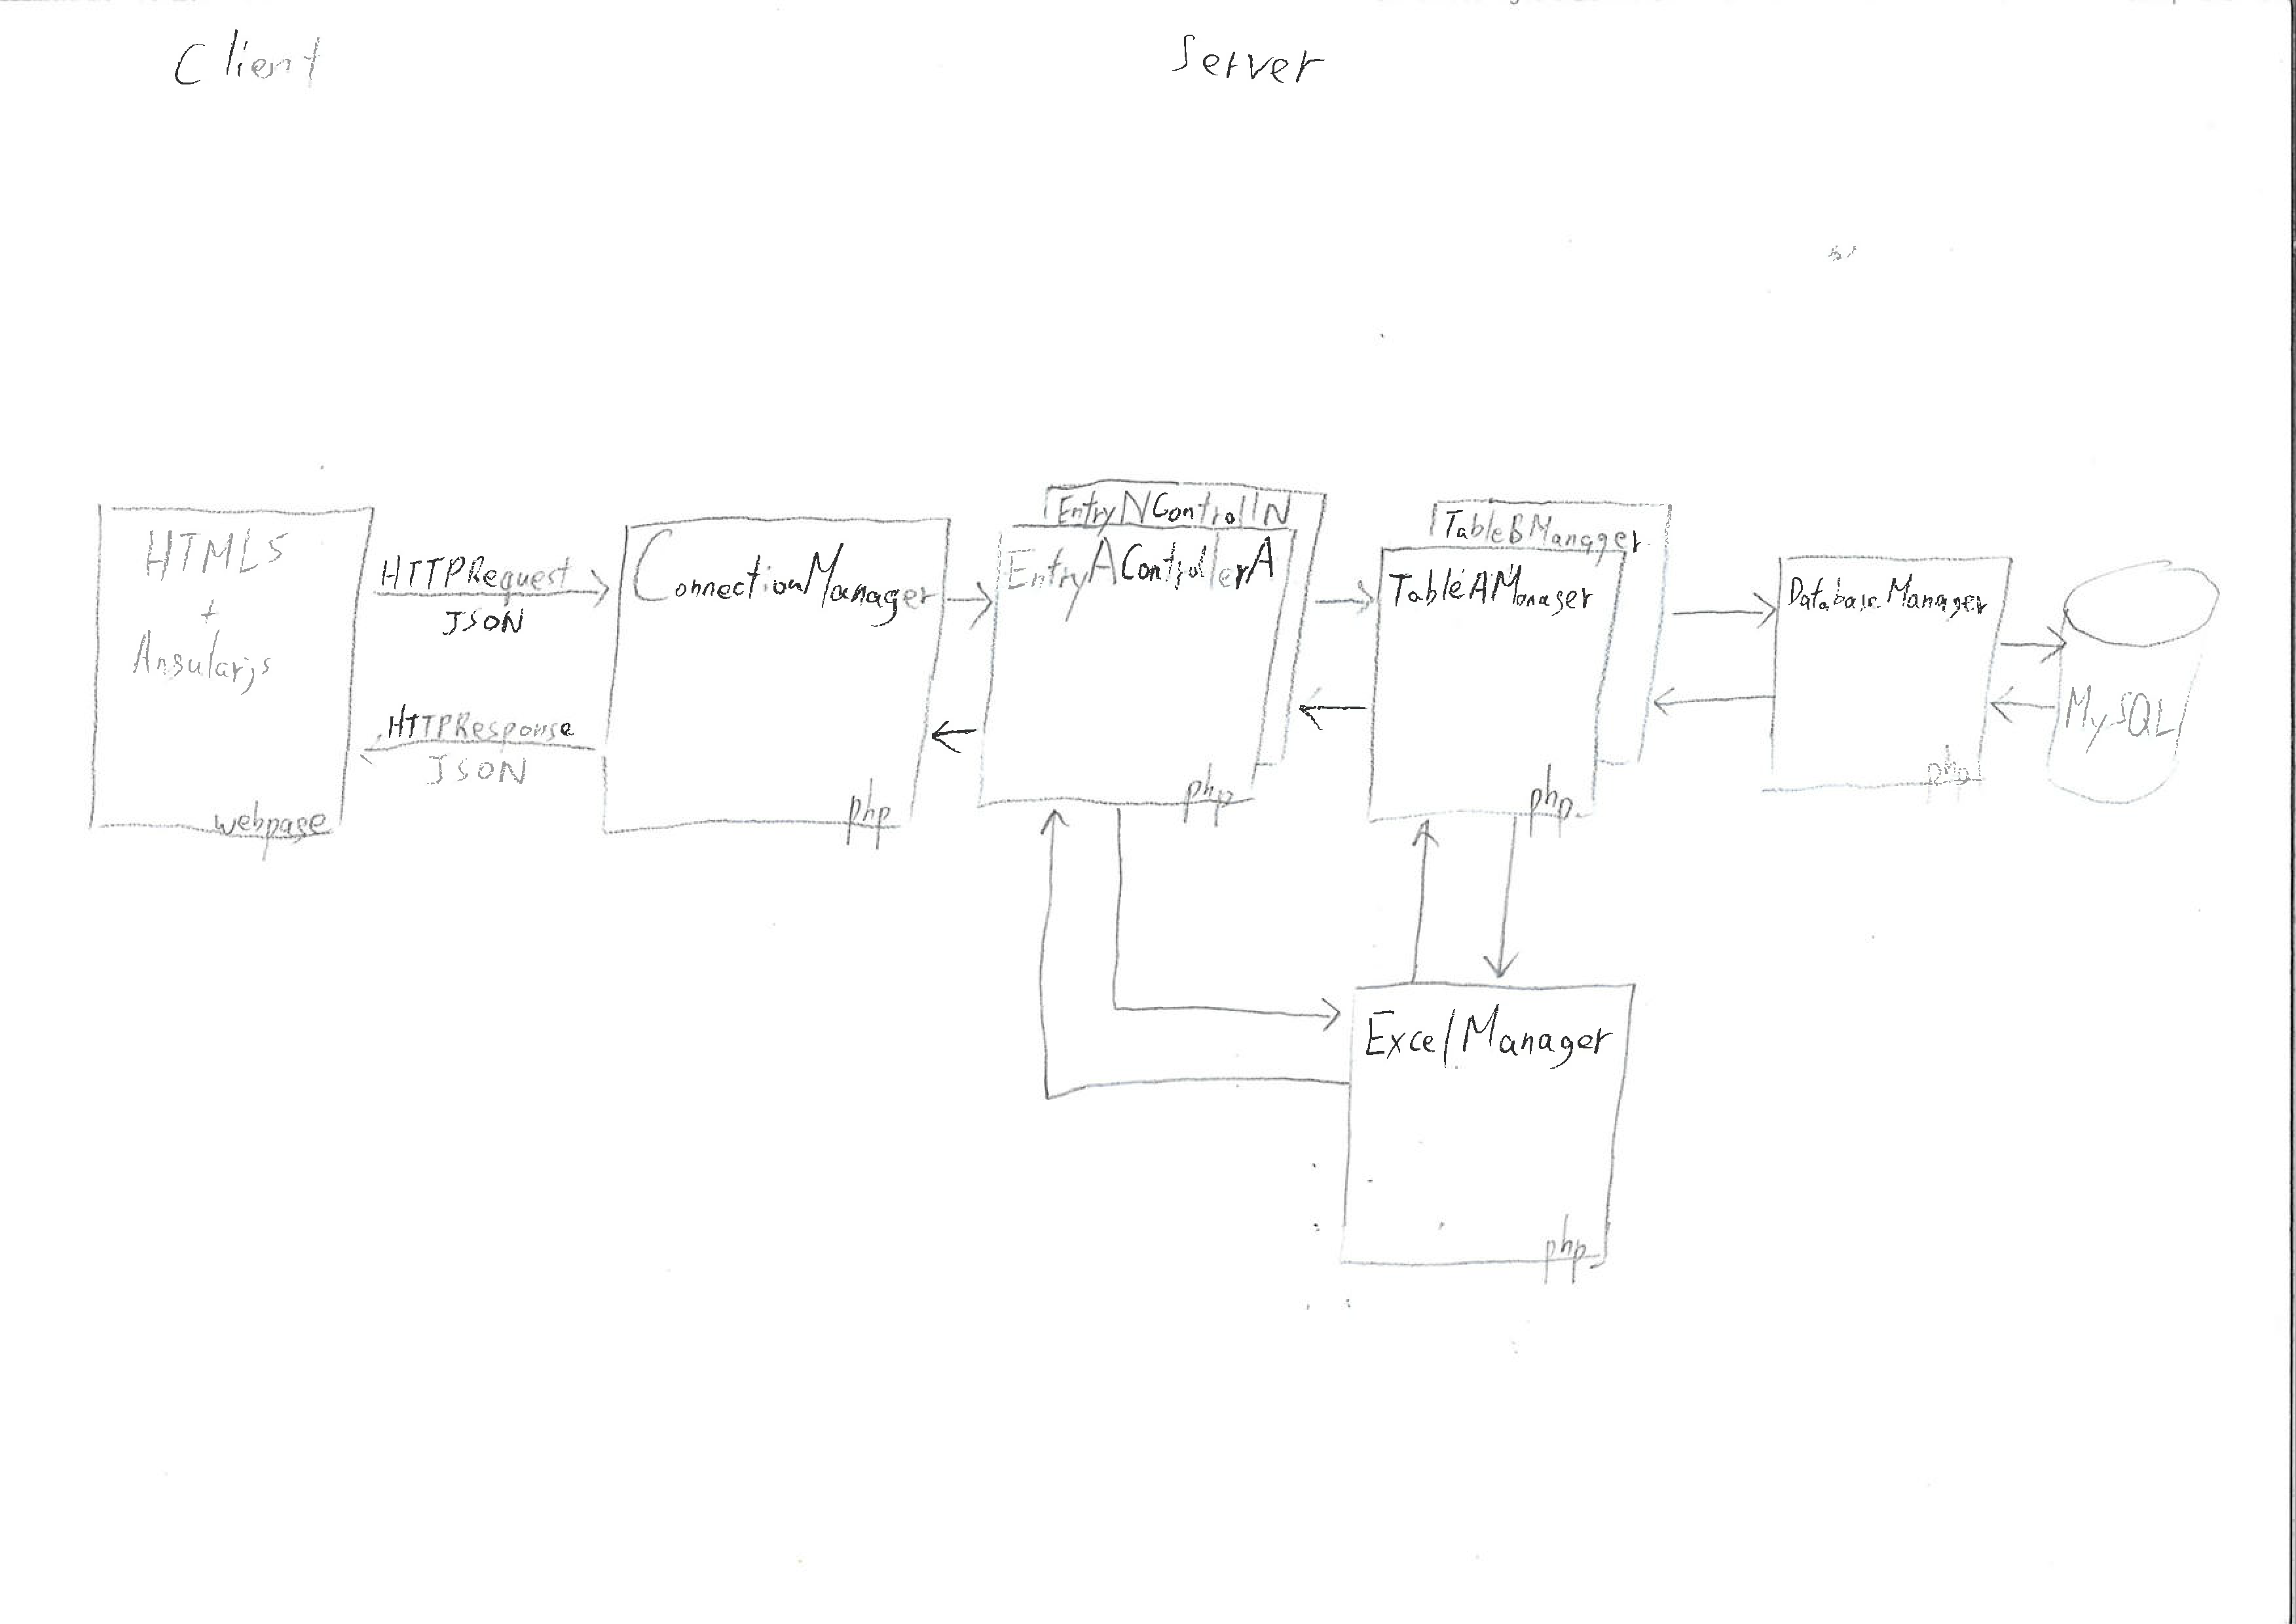 Client
Server
HTML5
+
Angularjs
webpage
HTTPRequest
JSON
HTTPResponse
JSON
ConnectionManager
php
EntryNControllN
EntryAControllerA
php
TableBManager
TableAManager
php
DatabaseManager
php
MySQL
ExcelManager
php